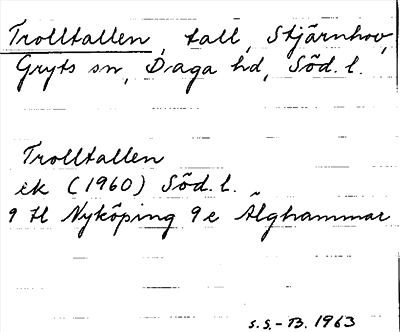 Trolltallen, tall, Stjärnhov,
Gryts sn, Daga hd, Söd. l.
Trolltallen
ek (1960) Söd. l.
9 H Nyköping 9 e Älghammar
S.S.-B. 1963